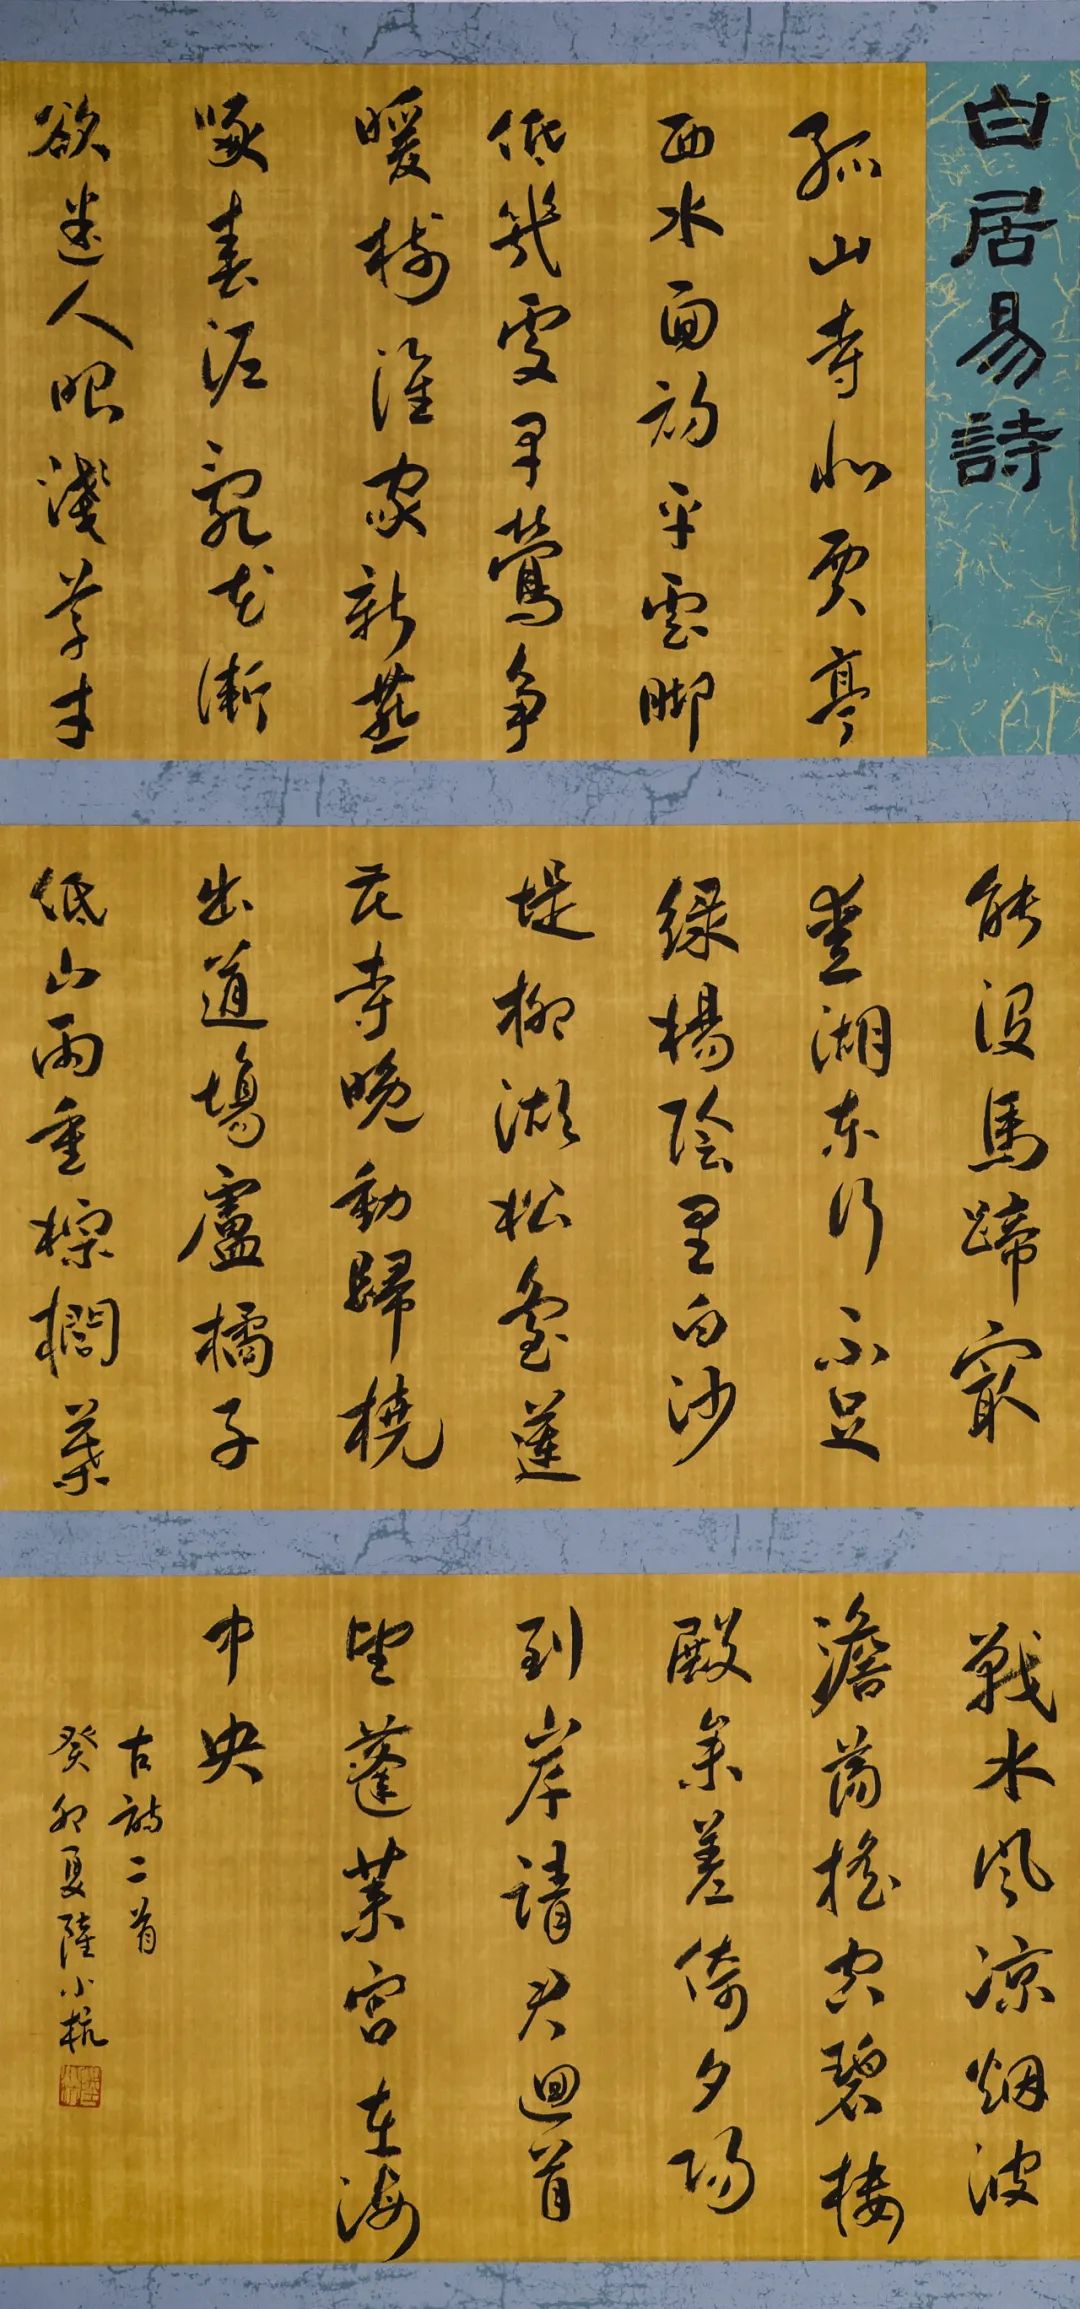 白居易詩
孤山寺北賈亭
西水面初平雲脚
低幾處早鶯争
暖樹誰家新燕
啄春泥亂花漸
欲迷人眼淺草才
能没馬蹄最
愛湖東行不足
绿楊陰里白沙
堤柳湖松島蓮
花寺晚動歸橈
出道場盧橘子
低山雨重棕櫚葉
戰水風涼烟波
澹蕩摇空碧樓
殿參差倚夕陽
到岸請君迴首
望蓬萊宫在海
中央
古詩二首
癸卯夏陸小杭